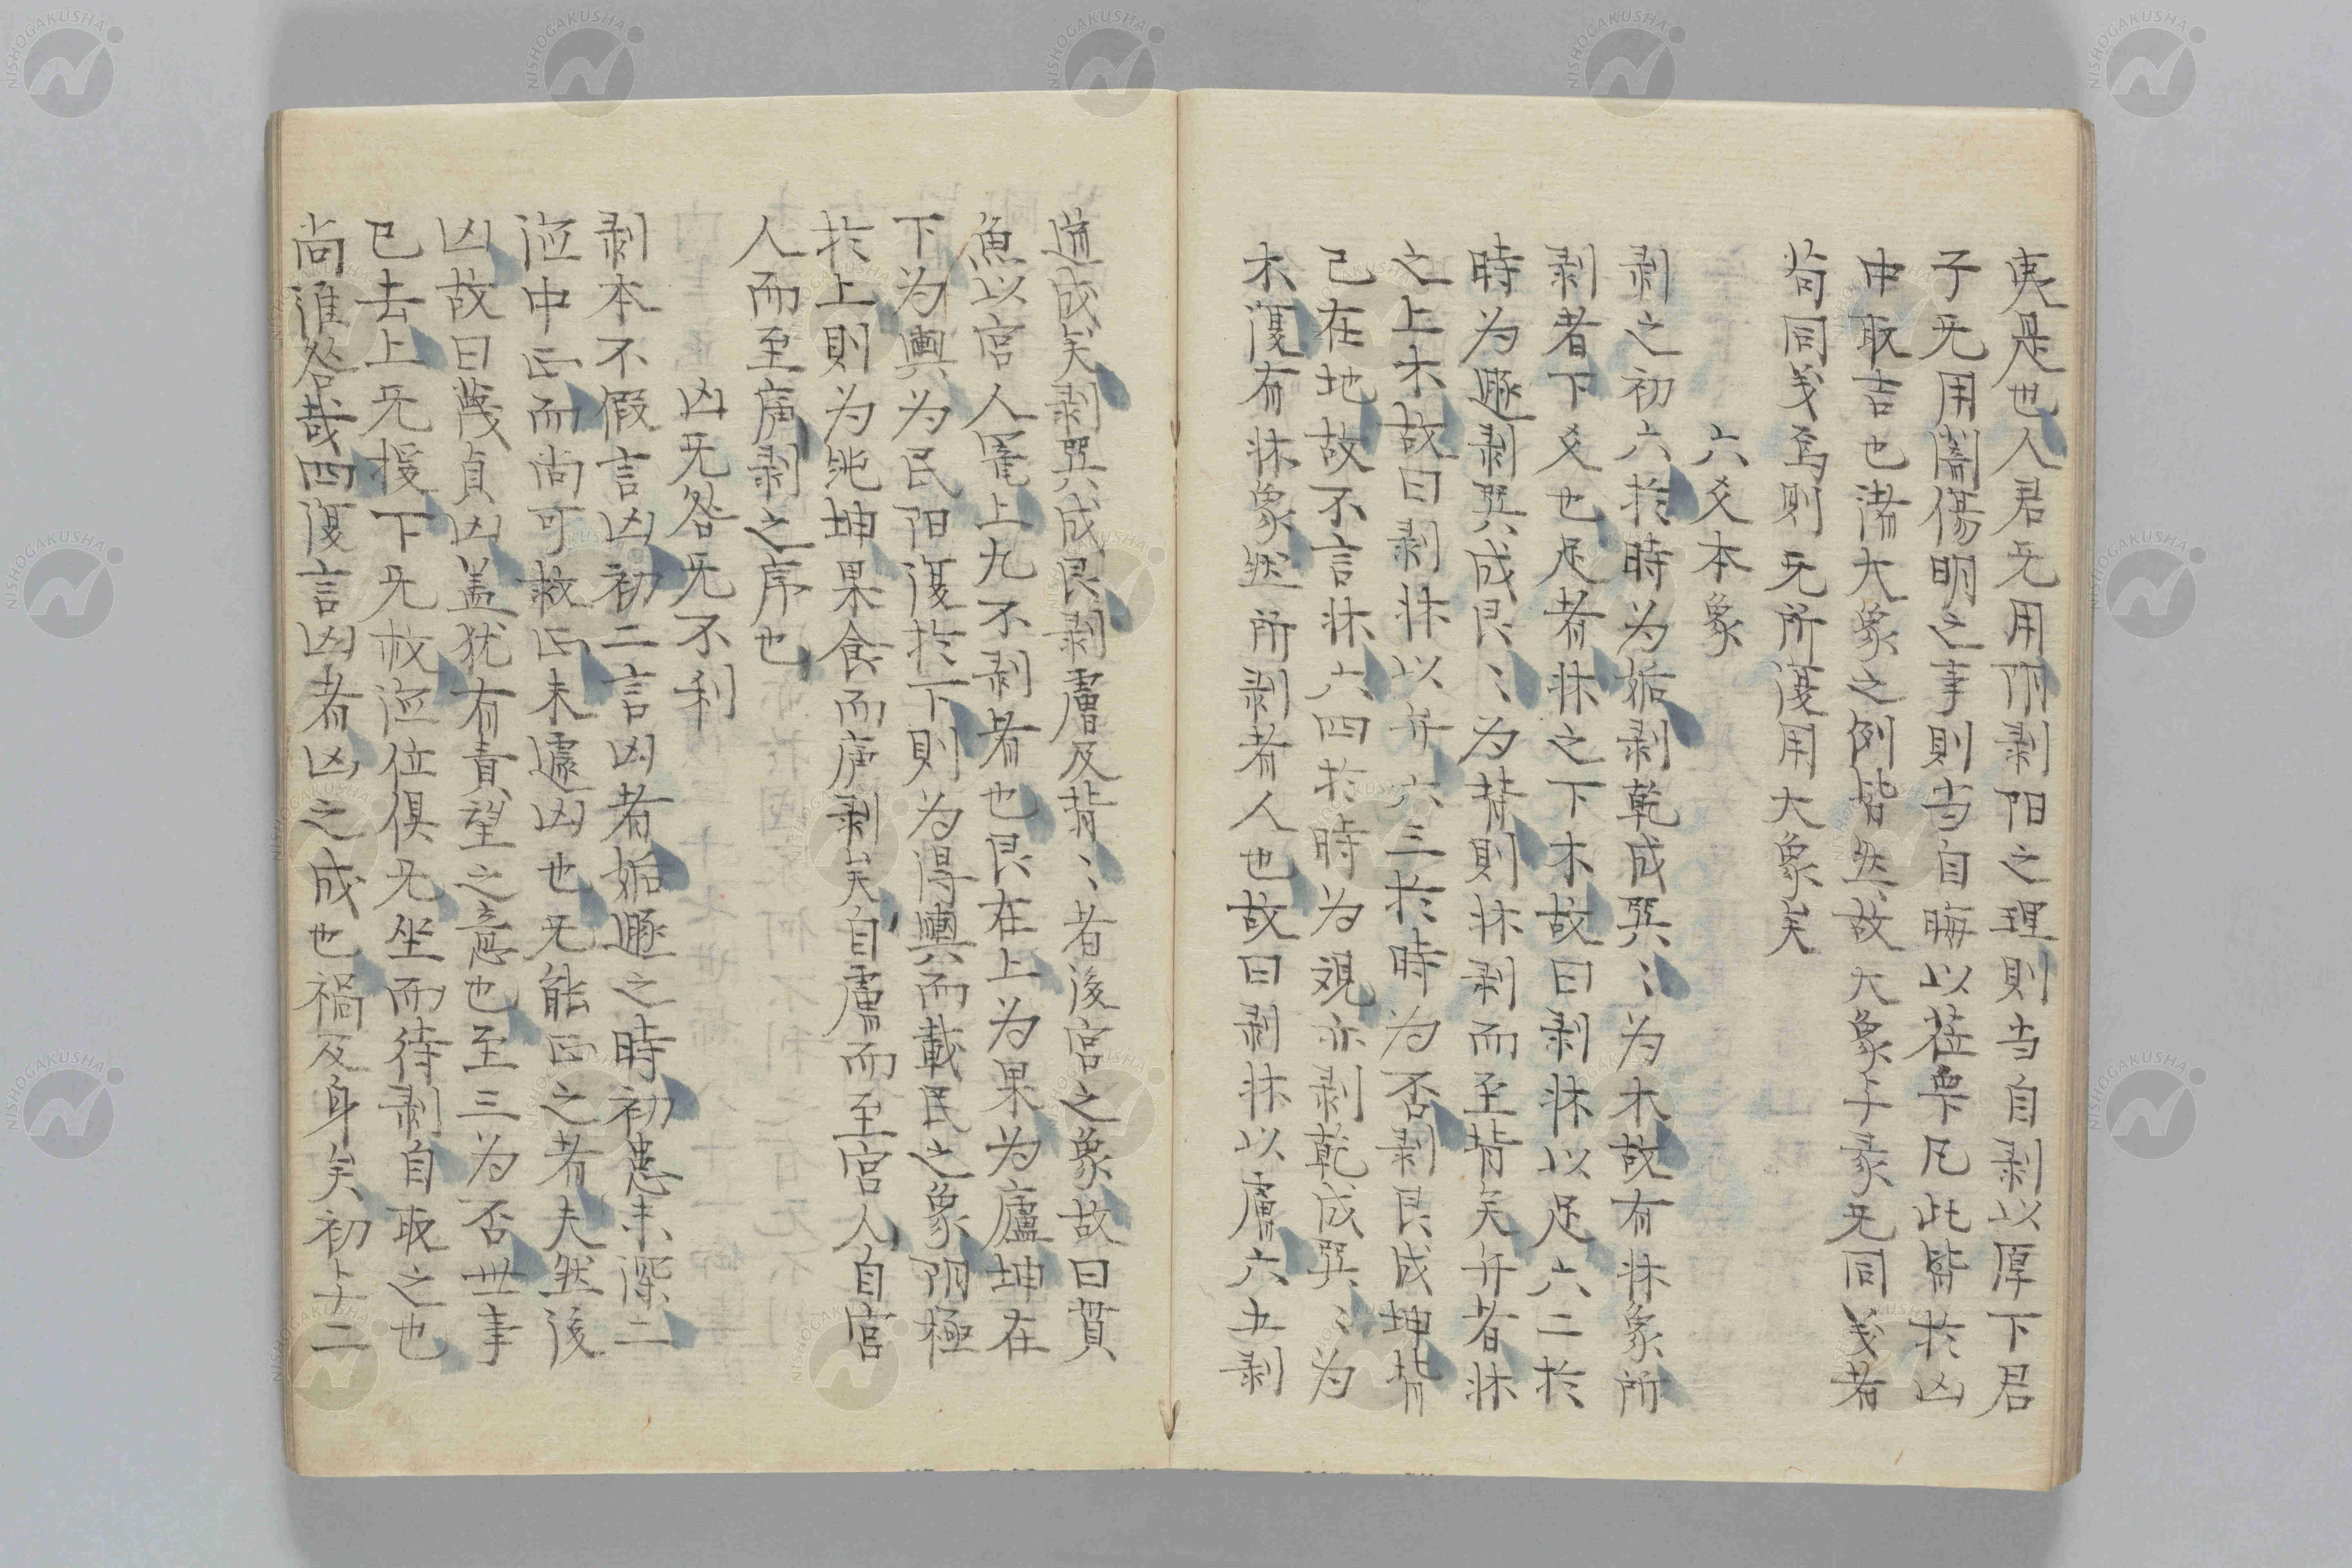 夷是也人君旡用阴剥阳之理則当自剥以厚下君
子旡用闇傷明之事則当自晦以莅衆凡此皆於凶
中取吉也諸大象之例皆然故大象与彖旡同义者
苟同义焉則旡所復用大象矣
六爻本象
剥之初六於時为姤剥乾成巽〻为木故有牀象所
剥者下爻也足者牀之下木故曰剥牀以足六二於
時为遯剥巽成艮〻为背則牀剥而至背矣弁者牀
之上木故曰剥牀以弁六三於時为否剥艮成坤背
已在地故不言牀六四於時为观亦剥乾成巽〻为
木復有牀象然所剥者人也故曰剥牀以膚六五剥
道成矣剥巽成艮剥膚及背〻者後宮之象故曰貫
魚以宮人寵上九不剥者也艮在上为果为廬坤在
下为輿为民阳復於下則为得輿而載民之象阴極
於上則为純坤果食而庐剥矣自膚而至宮人自宮
人而至庐剥之序也
凶旡咎旡不利
剥本不假言凶初二言凶者姤遯之時初患未深二
涖中正而尚可救正未遽凶也旡能正之者夫然後
凶故曰蔑貞凶盖犹有責望之意也至三为否世事
已去上旡援下旡救涖位俱旡坐而待剥自取之也
尚誰咎哉四復言凶者凶之成也禍及身矣初与二